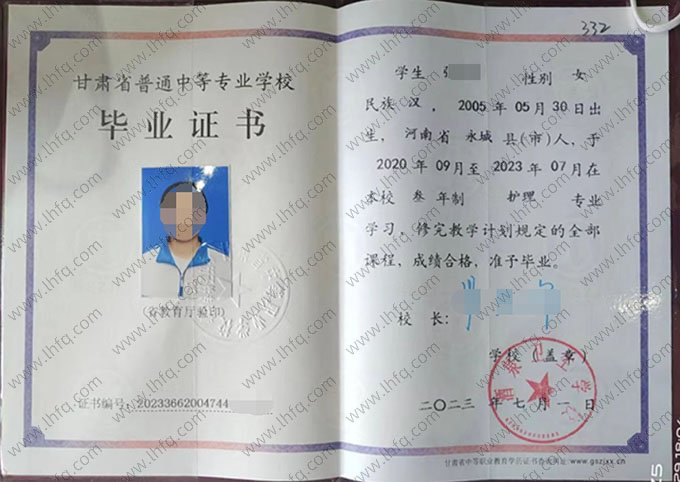 甘肃省普通中等专业学校
毕业证书
(省教育厅验印)
证书编号: 20233662004744
332
学生 张 性别 女
民族 汉 , 2005 年 05 月 30 日出
生, 河南省 永城 县(市)人, 于
2020 年 09 月至 2023 年 07 月在
本校 叁 年制 护理 专业
学习, 修完教学计划规定的全部
课程, 成绩合格, 准予毕业。
校 长:
学校 (盖章)
二〇二三 年 七 月 一 日
甘肃省中等职业教育学历证书查询网址 www.gszjxx.cn
www.lhfq.com